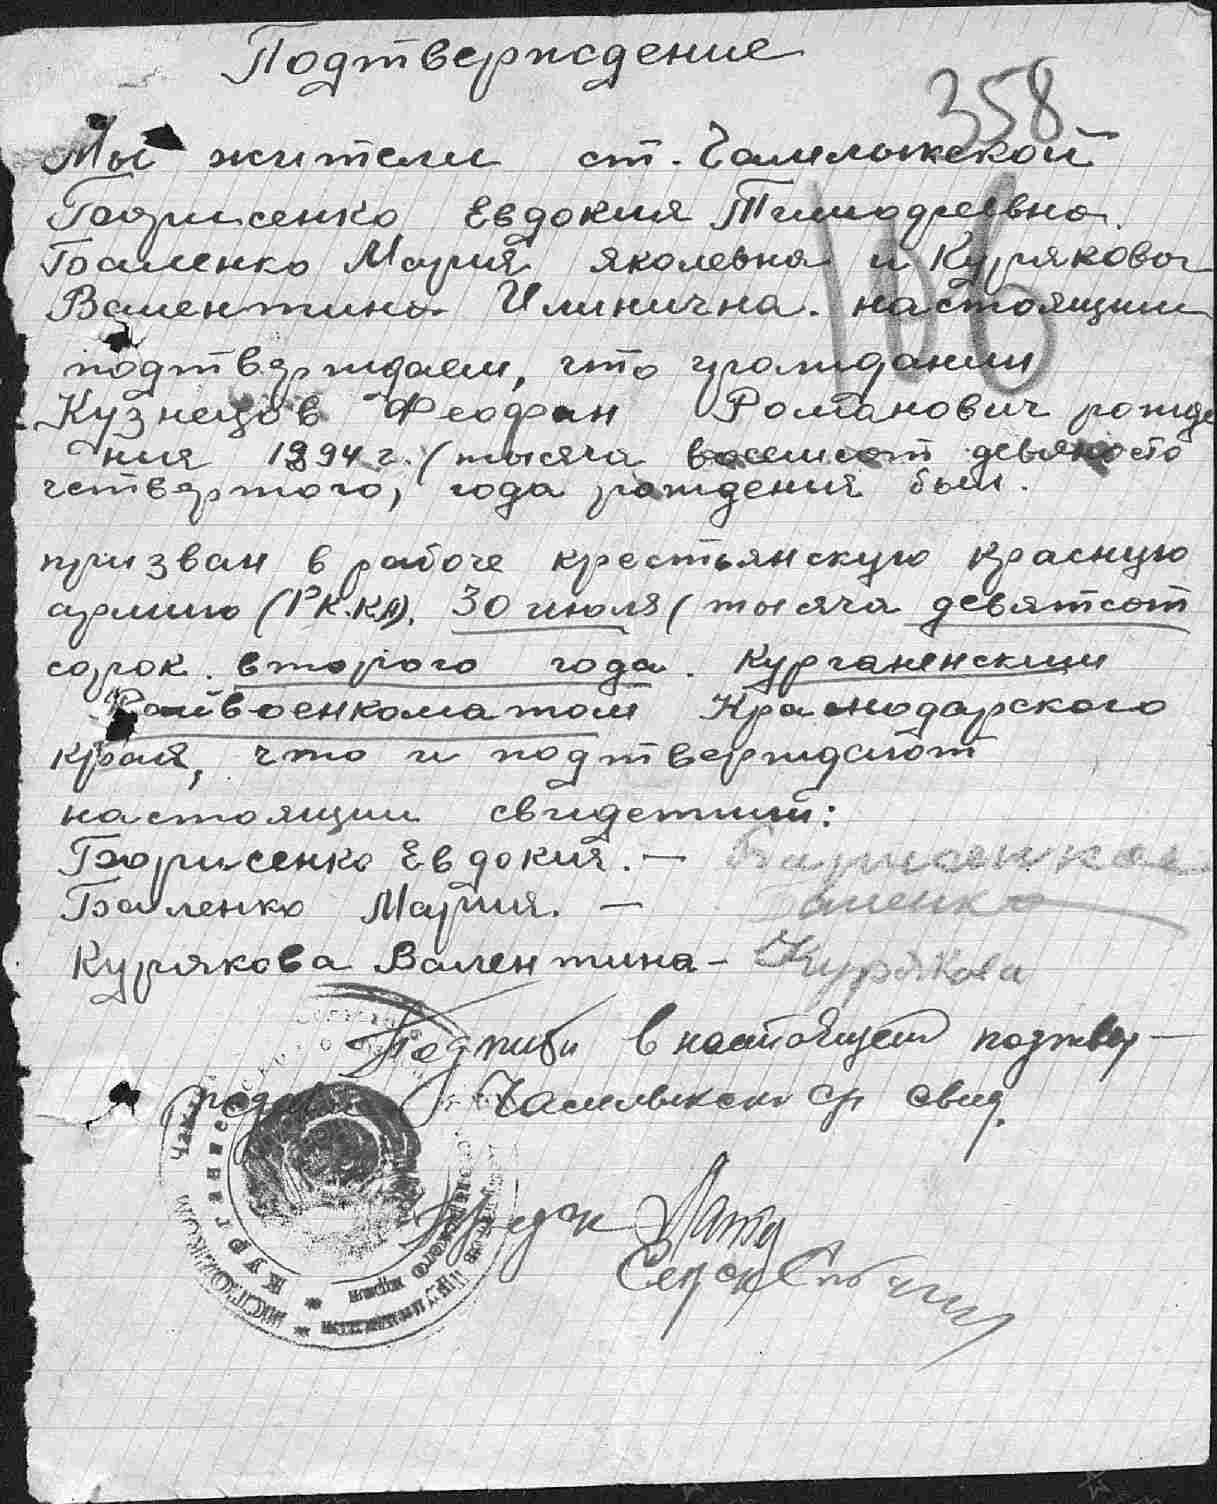 Подтверждение
358
Мы жители ст. Чамлыкской
Борисенко Евдокия Тимофеевна
106
Баленко Мария яколевна и Курякова
Валентина Илинична. настоящим
подтверждаем, что гражданин
Кузнецов Феофан Романович рожде
ния 1894 г. (тысяча восемсот девяносто
четвертого, года рождения был.
призван в рабоче крестьянскую красную
армию (РК.КА). 30 июля (тысяча девятсот
сорок. второго года. Курганенским
Райвоенкоматом Краснодарского
края, что и подтверждают
настоящии свидетили:
Борисенко Евдокия. — Борисенкое
Баленко Мария. — Баленко
Курякова Валентина – Курякова
Подписи в настоящем подтвер–
Чамлыкски ср свид.
Предск
Секр ск